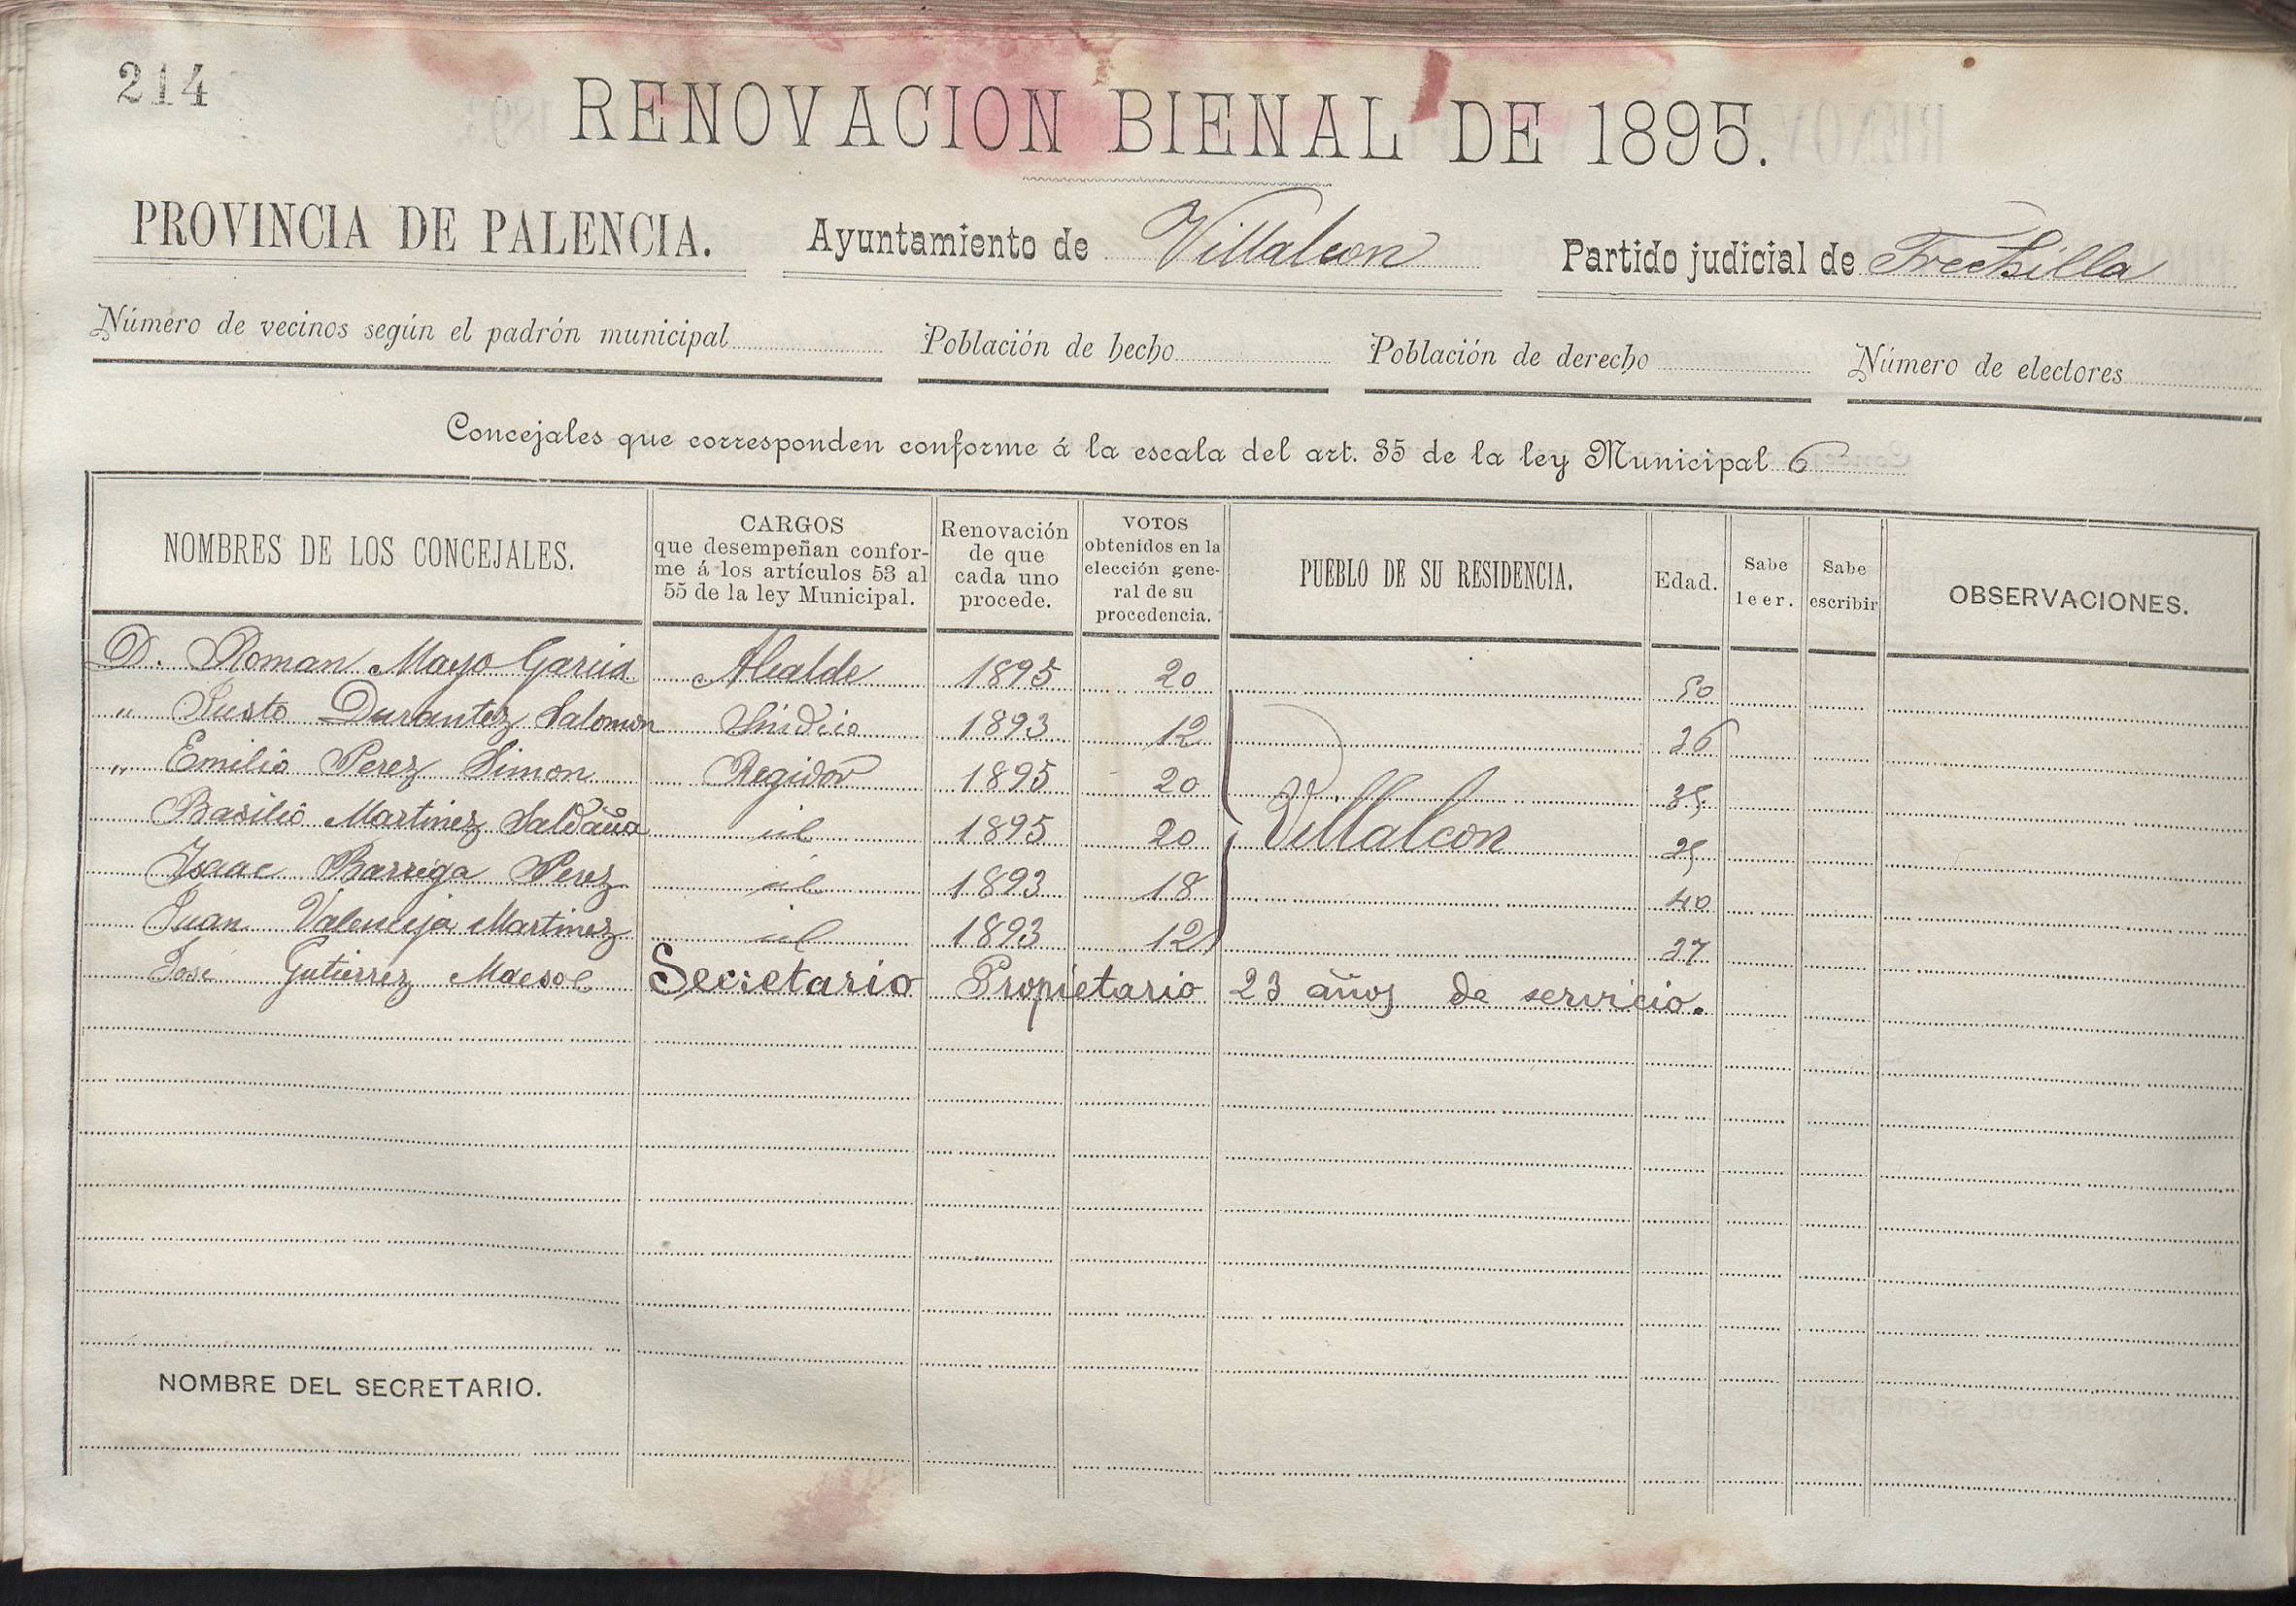 214
RENOVACION BIENAL DE 1895.
PROVINCIA DE PALENCIA. Ayuntamiento de Villalcon Partido judicial de Frechilla
Número de vecinos según el padrón municipal Población de hecho Población de derecho Número de electores
Concejales que corresponden conforme á la escala del art. 35 de la ley Municipal 6
NOMBRES DE LOS CONCEJALES.
CARGOS
que desempeñan confor-
me á los artículos 53 al
55 de la ley Municipal.
Renovación
de que
cada uno
procede.
VOTOS
obtenidos en la
elección gene-
ral de su
procedencia.
PUEBLO DE SU RESIDENCIA.
Edad.
Sabe
leer.
Sabe
escribir
OBSERVACIONES.
D. Roman Mayo Garcia Alcalde 1895 20 50
" Justo Durantez Salomon Sindico 1893 12 36
" Emilio Perez Simon Regidor 1895 20 35
Basilio Martinez Saldaña id 1895 20 Villalcon
Isaac Barriga Perez id 1893 18 40
Juan Valenceja Martinez id 1893 12
José Gutierrez Macsol Secretario Propietario 23 años de servicio.
NOMBRE DEL SECRETARIO.